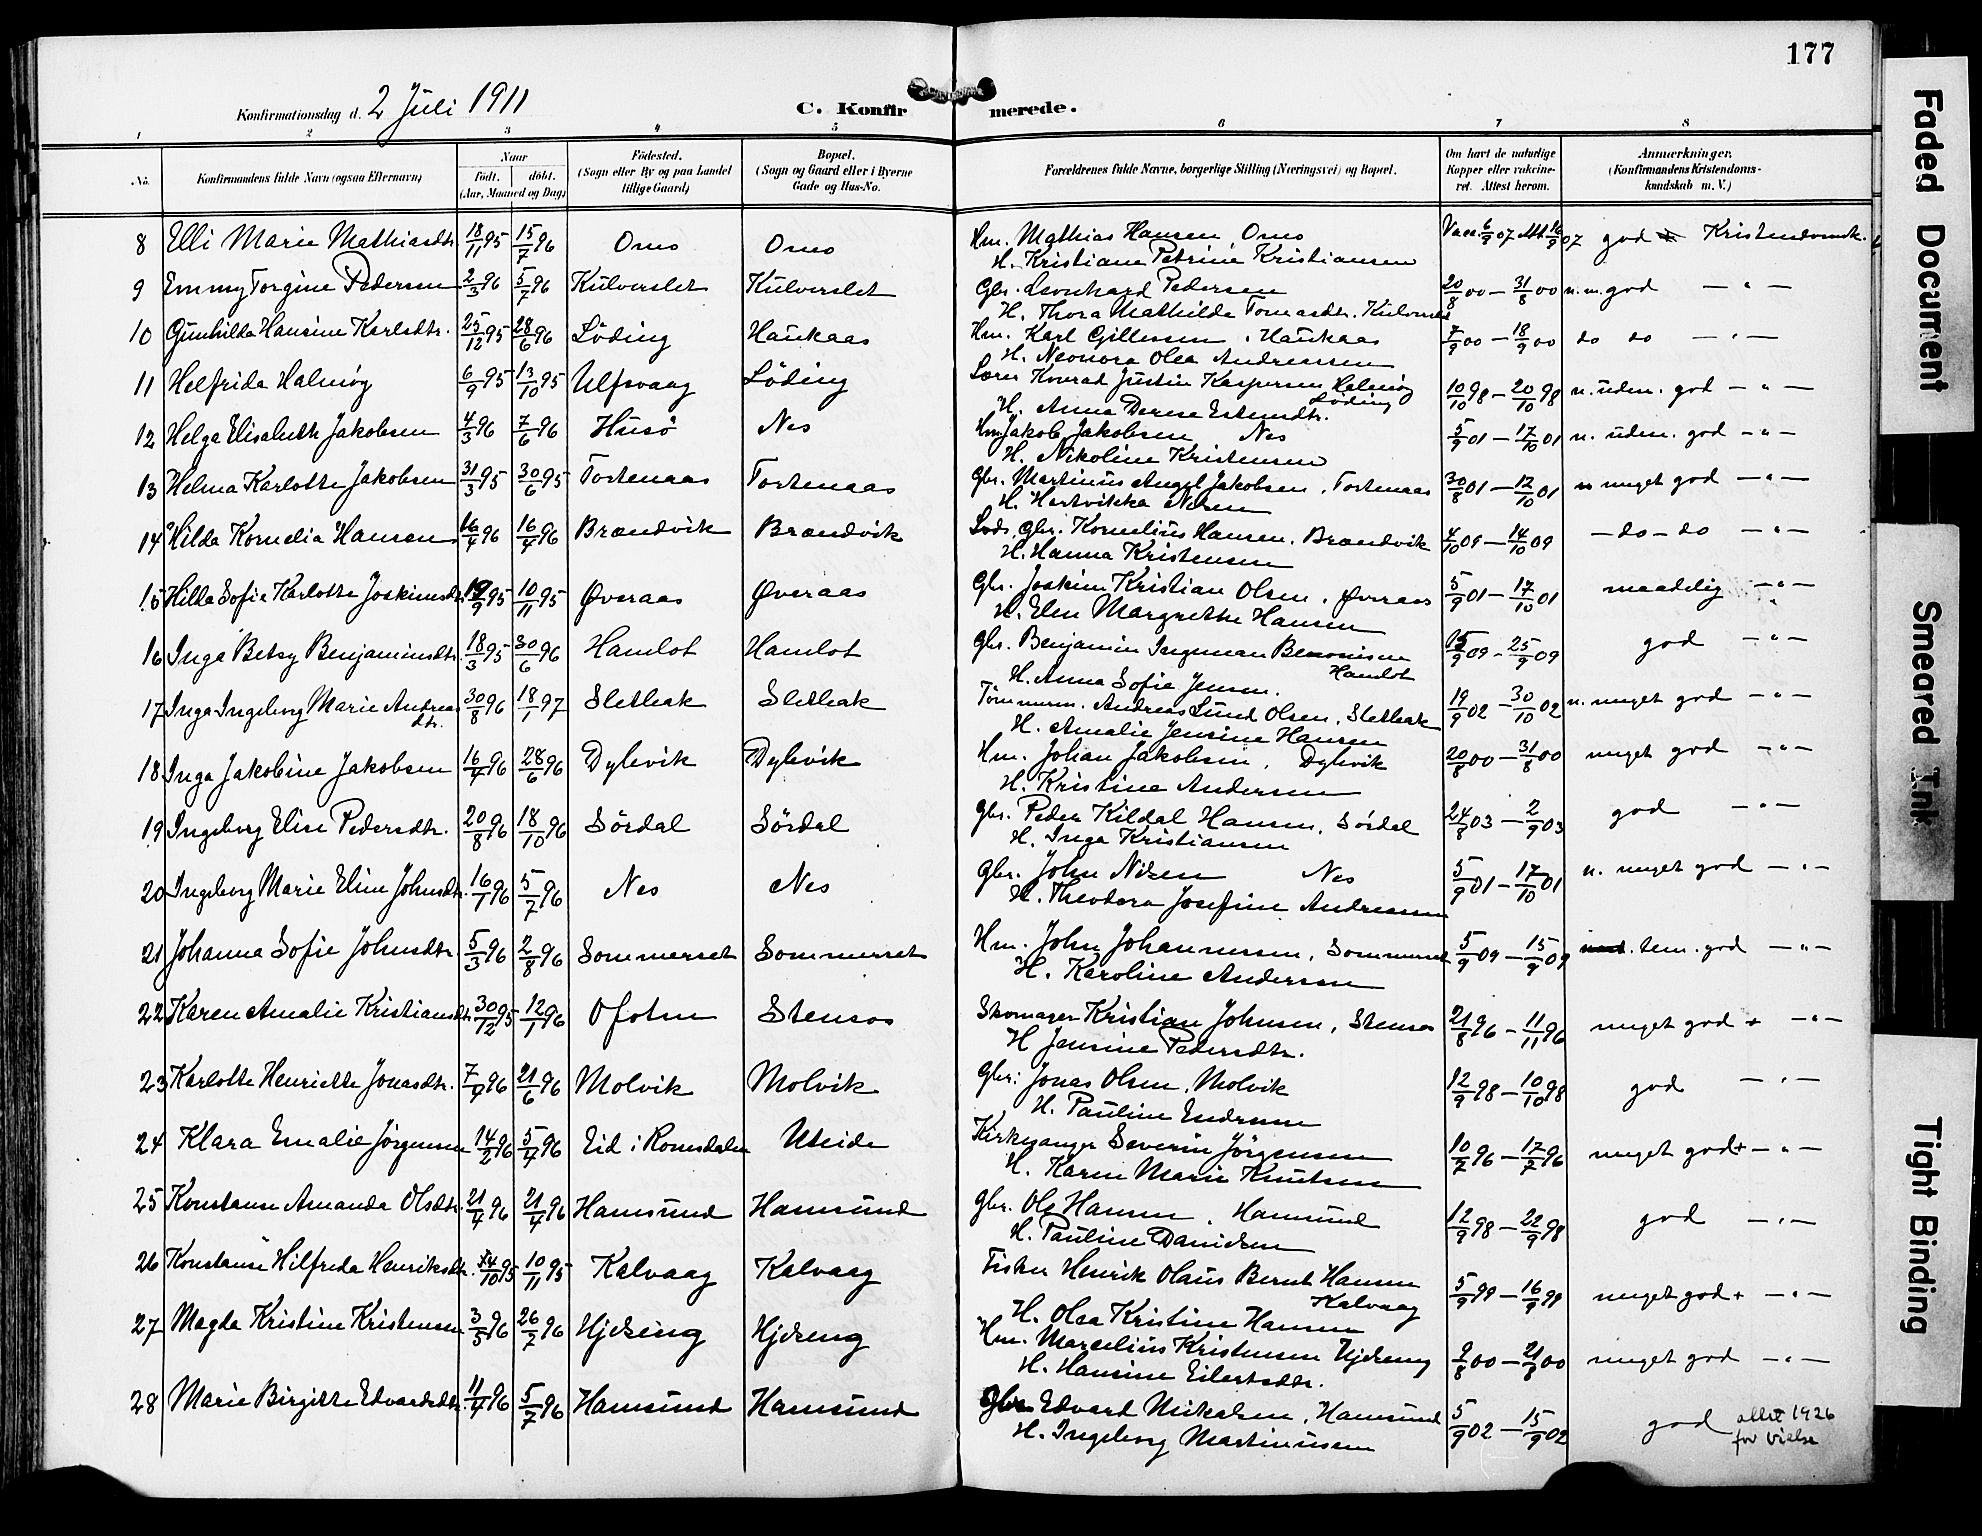 177
Konfirmationsdag d. 2 Juli 1911
C. Konfir merede.
1 2 3 4 5 6 7 8
No. Konfirmandens fulde Navn (ogsaa Efternavn) Naar födt. döbt. (Aar, Maaned og Dag) Födested. (Sogn eller By og paa Landet tillige Gaard) Bopæl. (Sogn og Gaard eller i Byerne Gade og Hus-No. Forældrenes fulde Navne, borgerlige Stilling (Næringsvei) og Bopæl. Om havt de naturlige Kopper eller vaccineret. Attest herom. Anmærkninger. (Konfirmandens Kristendomskundskab m. V.)
8 Elli Marie Mathiasdtr. 18/11 95 15/7 96 Oms Oms Hm. Mathias Hansen, Oms Vacc. 6/9 07 Att 16/9 07 god Kristendomsk.
H. Kristiane Petrine Kristiansen
9 Emmy Torgine Pedersen 2/3 96 5/7 96 Kulverslet Kulverslet Gbr. Leonhard Pedersen 20/8 00 — 31/8 00 n.m. god — " —
H. Thora Mathilde Tomasdtr.
10 Gunhilda Hansine Karlsdtr. 25/12 95 28/6 96 Löding Haukaas Hm. Karl Gillessen, Haukaas 7/9 00 — 18/9 00 do do — " —
H. Neonora Olea Andreassen
11 Helfrida Halmöy 6/9 95 13/10 95 Ulfsvaag Löding Lærer Konrad Justin Kaspersen Halmöy 10/10 98 — 20/10 98 n. uden. god — " —
Löding
H. Anna Estensdtr.
12 Helga Elisabeth Jakobsen 4/3 96 7/6 96 Husö Nes Hm Jakob Jakobsen, Nes 5/9 01 — 17/10 01 n. uden. god — " —
H. Nikoline Kristensen
13 Helma Karlotte Jakobsen 31/3 95 30/6 95 Tortenaas Tortenaas Gbr. Martinus Angel Jakobsen, Tortenaas 30/8 01 — 17/10 01 n meget god — " —
H. Hartvikka Nilsen
14 Hilda Kornelia Hansen 16/4 96 16/4 96 Brændvik Brændvik Lods, Gbr. Kornelius Hansen, Brændvik 4/10 09 — 14/10 09 — do — do — " —
H. Hanna Kristensen
15 Hilda Sofie Karlotte Joakimsdtr. 19/9 95 10/11 95 Øveraas Øveraas Gbr. Joakim Kristian Olsen, Øveraas 5/9 01 — 17/10 01 maadelig — " —
H. Elen Margrethe Hansen
16 Inga Betsy Benjaminsdtr. 18/3 95 30/6 96 Hamlot Hamlot Gbr. Benjamin Ingeman Benonisen 15/9 09 — 25/9 09 god — " —
Hamlot
H. Anna Sofie Jensen.
17 Inga Ingeborg Marie Andreasdtr. 30/8 96 18/1 97 Sletbak Sletbak Tömmerm. Andreas Lund Olsen, Sletbak 19/9 02 — 30/10 02 n. meget god — " —
H. Amalie Jensine Hansen
18 Inga Jakobine Jakobsen 16/4 96 28/6 96 Dybvik Dybvik Hm. Johan Jakobsen, Dybvik 20/8 00 — 31/8 00 meget god — " —
H. Kristine Andersen
19 Ingeborg Elise Pedersdtr. 20/8 96 18/10 96 Sördal Sördal Gbr. Peder Kildal Hansen, Sördal 24/8 03 — 2/9 03 god — " —
H. Inga Kristiansen
20 Ingeborg Marie Eline Johnsdtr. 16/1 96 5/7 96 Nes Nes Gbr. John Nilsen Nes 5/9 01 — 17/10 01 n. meget god — " —
H. Theodora Josefine Andreassen
21 Johanna Sofie Johnsdtr. 5/3 96 2/8 96 Sommerset Sommerset Hm. John Johannessen, Sommerset 5/9 09 — 15/9 09 tem. god — " —
H. Karoline Andersen
22 Karen Amalie Kristiansdtr. 30/12 95 12/1 96 Ofoten Stensos Skomager Kristian Johnsen, Stensos 21/8 96 — 11/11 96 meget god + — " —
H Jensine Pedersdtr.
23 Karlotte Henriette Jonasdtr. 7/4 96 21/6 96 Molvik Molvik Gbr: Jonas Olsen, Molvik 12/9 98 — 10/10 98 god — " —
H. Pauline Endresen
24 Klara Emalie Jörgensen 14/2 96 5/4 96 Eid i Romsdalen Uteide Kirkesanger Severin Jörgensen 10/7 96 — 17/7 96 meget god + — " —
H. Karen Marie Knutsen
25 Konstanse Amanda Olsdtr. 21/4 96 21/4 96 Hamsund Hamsund Gbr. Ole Hansen, Hamsund 12/9 98 — 22/9 98 god — " —
H. Pauline Danielsen
26 Konstanse Hilfreda Henriksdtr. 14/10 95 10/11 95 Kalvaag Kalvaag Fisker Henrik Olaus Bernt Hansen 5/9 99 — 16/9 99 meget god + — " —
Kalvaag
H. Olea Kristine Hansen
27 Magda Kristine Kristensen 3/5 96 26/7 96 Hjelseng Hjelseng Hm. Marcelius Kristensen Hjelseng 9/8 00 — 21/8 00 meget god — " —
H. Hansine Eilertsdtr.
28 Marie Birgitte Edvardsdtr. 11/4 96 5/7 96 Hamsund Hamsund Gbr. Edvard Mikalsen, Hamsund 5/9 02 — 15/9 02 god attest 1926 for vielse
H. Ingeborg Martinussen
Faded Document
Smeared Ink
Tight Binding